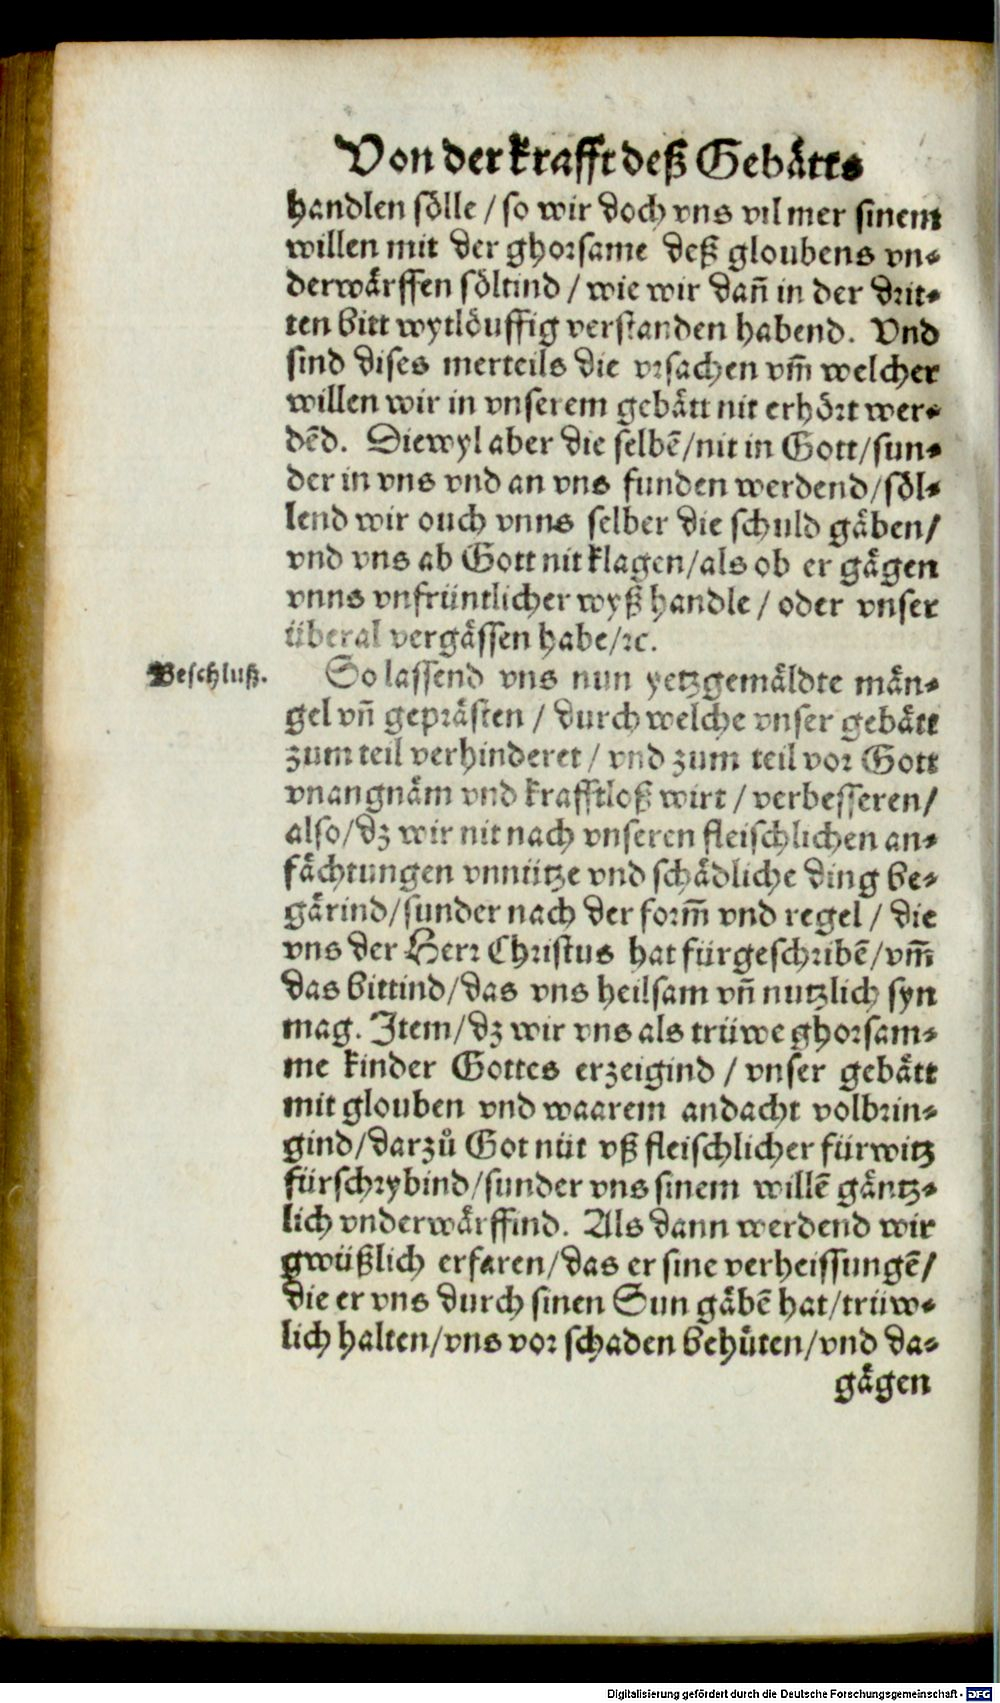 Von der krafft deß Gebätts
handlen sölle / so wir doch vns vil mer sinem
willen mit der ghorsame deß gloubens vn-
derwärffen söltind / wie wir dañ in der drit-
ten bitt wytlöuffig verstanden habend. Vnd
sind dises merteils die vrsachen vm̃ welcher
willen wir in vnserem gebätt nit erhört wer-
dēd. Diewyl aber die selbē/nit in Gott/sun-
der in vns vnd an vns funden werdend/söl-
lend wir ouch vnns selber die schuld gäben/
vnd vns ab Gott nit klagen/als ob er gägen
vnns vnfrüntlicher wyß handle / oder vnser
überal vergässen habe/ꝛc.
Beschluß.
So lassend vns nun yetzgemäldte män-
gel vñ geprästen / durch welche vnser gebätt
zum teil verhinderet / vnd zum teil vor Gott
vnangnäm vnd krafftloß wirt / verbesseren/
also/dz wir nit nach vnseren fleischlichen an-
fächtungen vnnütze vnd schädliche ding be-
gärind/sunder nach der form̃ vnd regel / die
vns der Herr Christus hat fürgeschribē/vm̃
das bittind/das vns heilsam vñ nutzlich syn
mag. Item/dz wir vns als trüwe ghorsam-
me kinder Gottes erzeigind / vnser gebätt
mit glouben vnd waarem andacht volbrin-
gind/darzů Got nüt vß fleischlicher fürwitz
fürschrybind/sunder vns sinem willē gäntz-
lich vnderwärffind. Als dann werdend wir
gwüßlich erfaren/das er sine verheissungē/
die er vns durch sinen Sun gäbē hat/trüw-
lich halten/vns vor schaden behüten/vnd da-
gägen
Digitalisierung gefördert durch die Deutsche Forschungsgemeinschaft - DFG